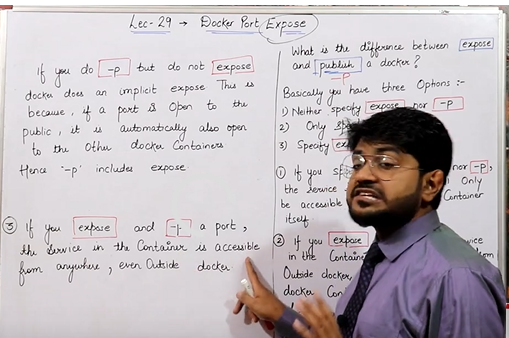 Lec- 29 → Docker Port Expose
If you do -p but do not expose
docker does an implicit expose This is
because, if a port is Open to the
public, it is automatically also open
to the Other docker Containers
Hence '-p' includes expose
③ If you expose and -p a port,
the Service in the Container is accessible
from anywhere, even Outside docker
What is the difference between expose
and publish a docker?
-p
Basically you have three Options :-
1) Neither specify expose nor -p
2) Only
3) Specify
① If you nor -p,
the service Only
be accessible Container
itself
② If you expose
in the
Outside docker
docker